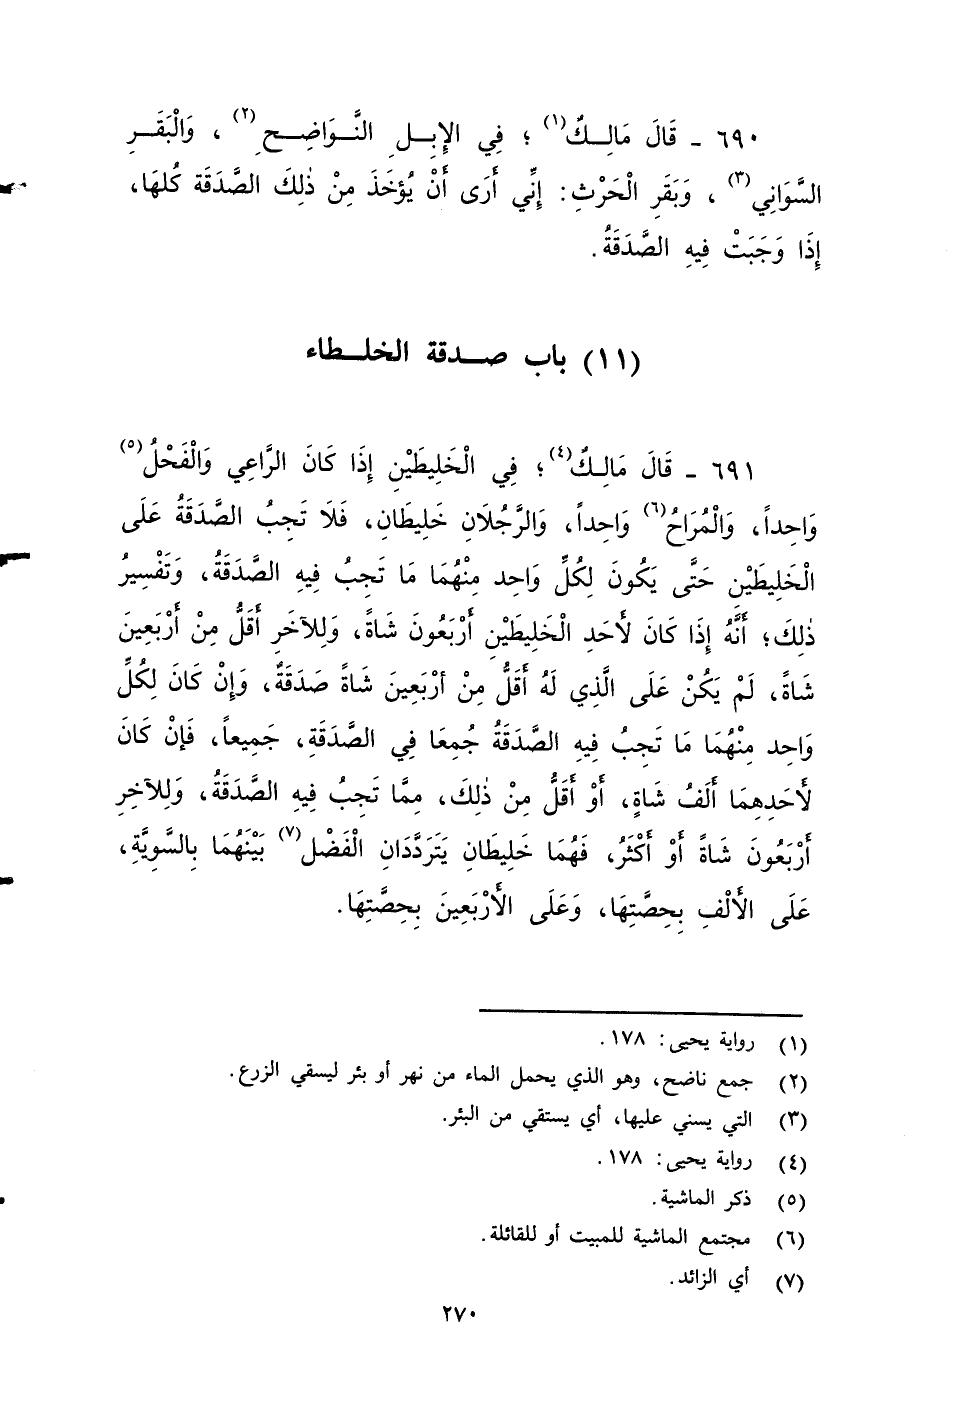 ٦٩٠ ـ قَالَ مَالِـكٌ(١) ؛ فِي الإِبِـلِ النَّـوَاضِـحِ(٢) ، وَالْبَقَـرِ
السَّوَانِي(٣) ، وَبَقَرِ الْحَرْثِ: إِنِّي أَرَى أَنْ يُؤخَذَ مِنْ ذٰلِكَ الصَّدَقَة كُلهَا،
إِذَا وَجَبَتْ فِيهِ الصَّدَقَةُ.
(١١) باب صـدقة الخلـطاء
٦٩١ ـ قَالَ مَالِكٌ(٤)؛ فِي الْخَلِيطَيْنِ إِذَا كَانَ الرَّاعِي وَالْفَحْلُ(٥)
وَاحِداً، وَالْمُرَاحُ(٦) وَاحِداً، وَالرَّجُلَانِ خَلِيطَانِ، فَلَا تَجِبُ الصَّدَقَةُ عَلَى
الْخَلِيطَيْنِ حَتَّى يَكُونَ لِكُلِّ وَاحِد مِنْهُمَا مَا تَجِبُ فِيهِ الصَّدَقَةُ، وَتَفْسِيرُ
ذٰلِكَ؛ أَنَّهُ إِذَا كَانَ لأَحَدِ الْخَلِيطَيْنِ أَرْبَعُونَ شَاةً، وَلِلآخَرِ أَقَلُّ مِنْ أَرْبَعِينَ
شَاةً، لَمْ يَكُنْ عَلَى الَّذِي لَهُ أَقَلُّ مِنْ أرْبَعِينَ شَاةً صَدَقَةٌ، وَإِنْ كَانَ لِكُلِّ
وَاحِد مِنْهُمَا مَا تَجِبُ فِيهِ الصَّدَقَةُ جُمِعَا فِي الصَّدَقَةِ، جَمِيعاً، فَإنْ كَانَ
لأَحَدِهِمَا أَلْفُ شَاةٍ، أَوْ أَقَلُّ مِنْ ذٰلِكَ، مِمَّا تَجِبُ فِيهِ الصَّدَقَةُ، وَلِلآخِرِ
أَرْبَعُونَ شَاةً أَوْ أَكْثَرُ، فَهُمَا خَلِيطَانِ يَتَرَدَّدَانِ الْفَضْل(٧) بَيْنَهُمَا بِالسَّوِيَّةِ،
عَلَى الأَلْفِ بِحِصَّتِهَا، وَعَلَى الأَرْبَعِينَ بِحِصَّتِهَا.
(١) رواية يحيى: ١٧٨.
(٢) جمع ناضح، وهو الذي يحمل الماء من نهر أو بئر ليسقي الزرع.
(٣) التي يسني عليها، أي يستقي من البئر.
(٤) رواية يحيى: ١٧٨.
(٥) ذكر الماشية.
(٦) مجتمع الماشية للمبيت أو للقائلة.
(٧) أي الزائد.
٢٧٠